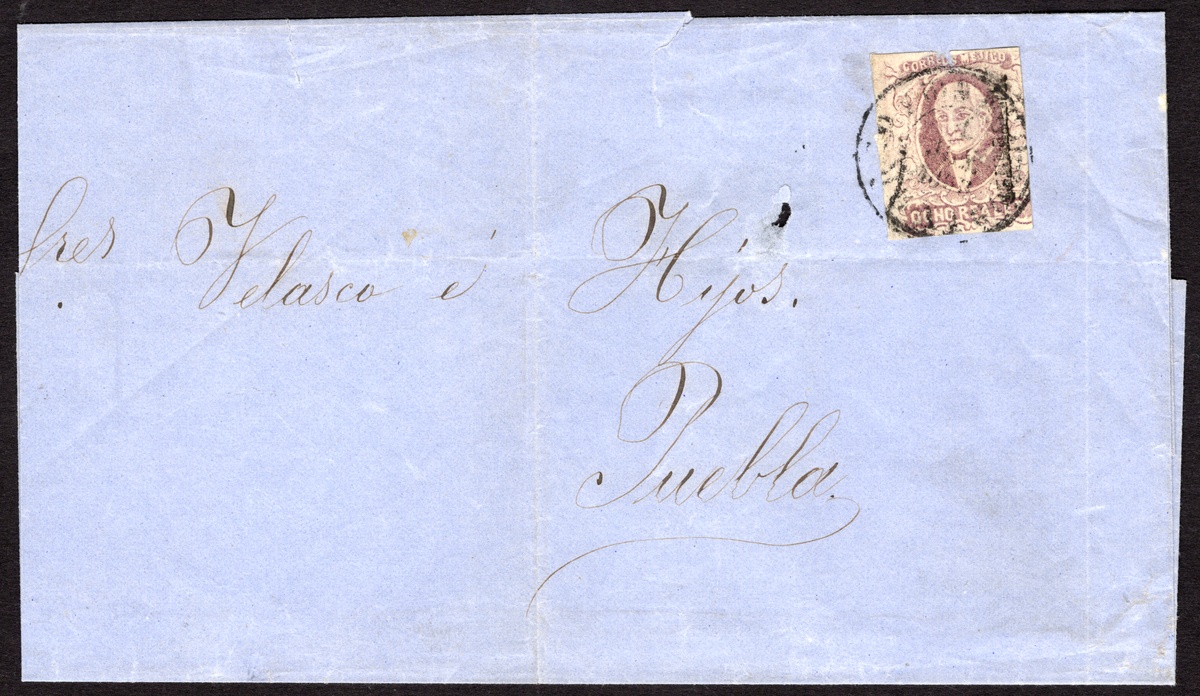 CORREOS MEJICO
OCHO REALES
Sres Velasco é Hijos.
Puebla